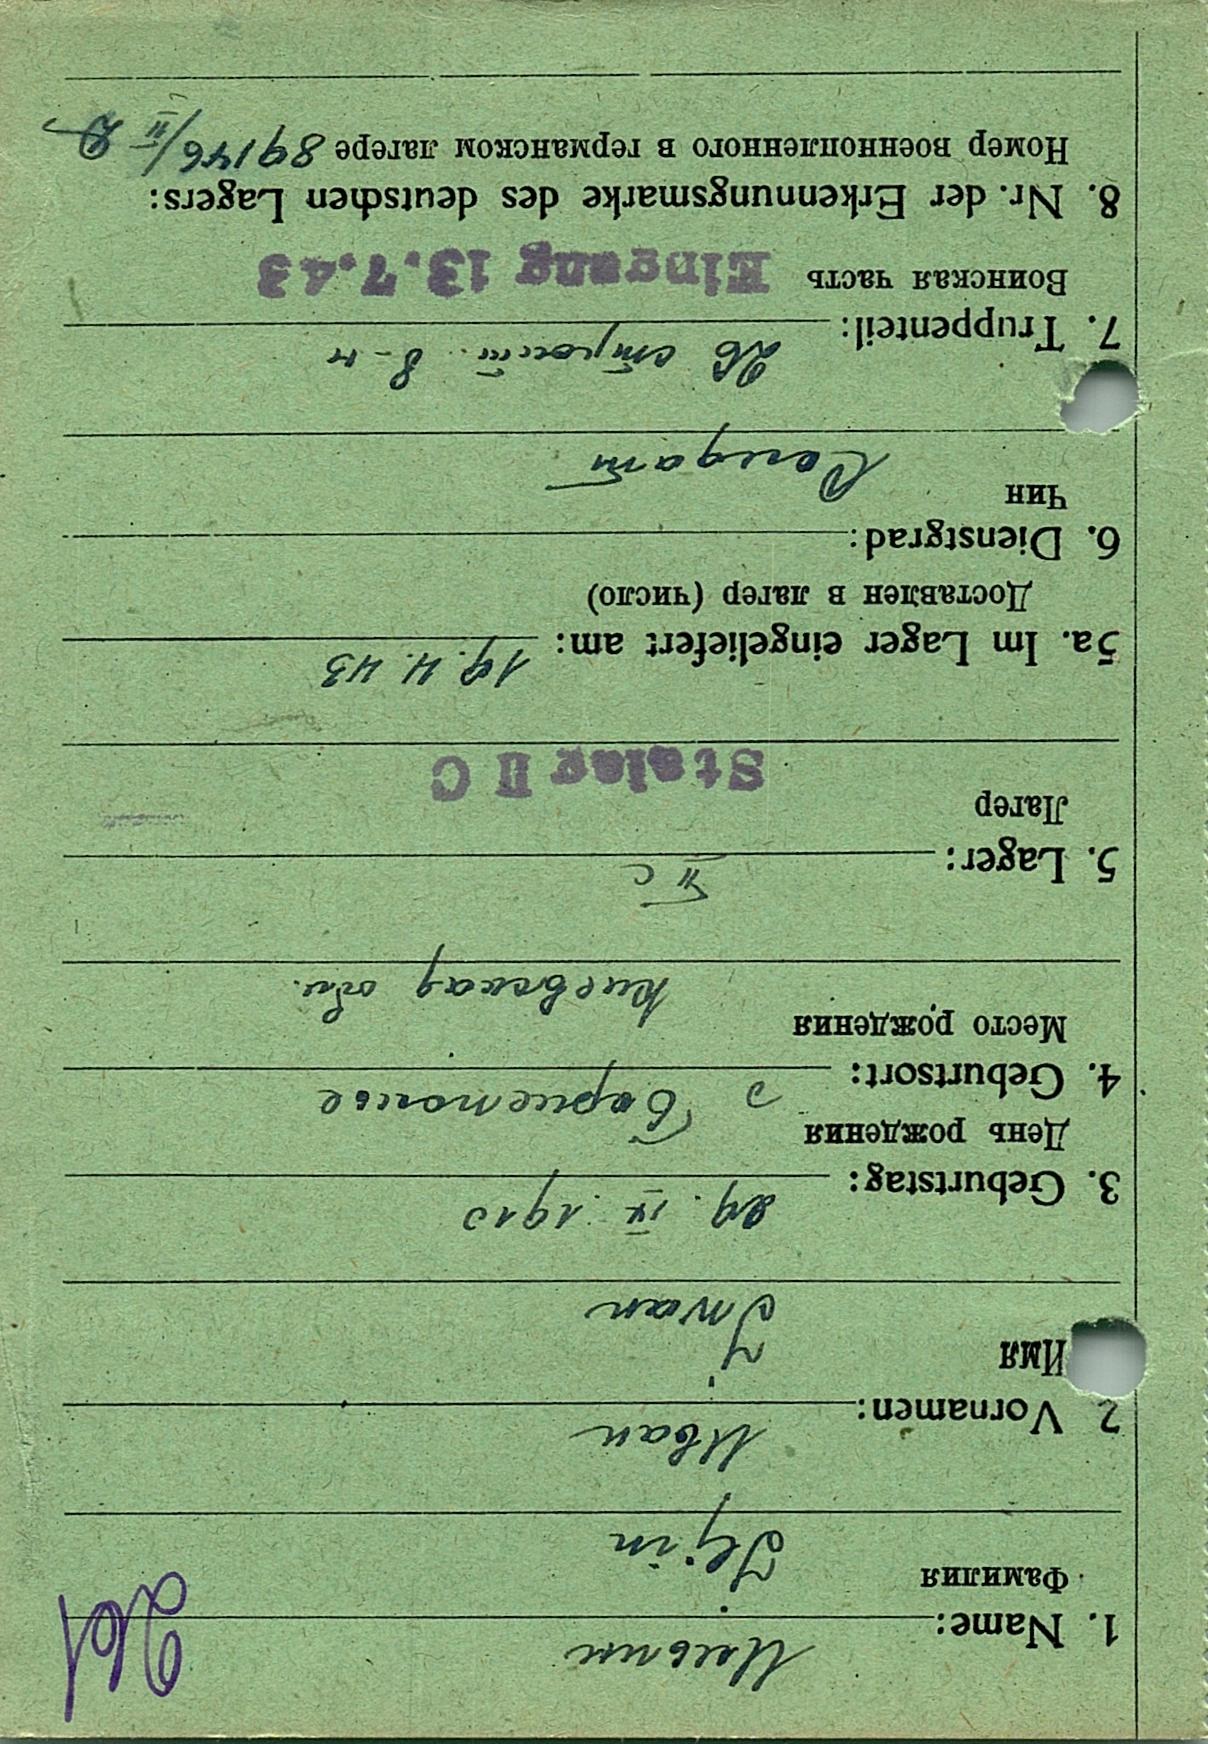 261
1. Name: Ильин
Фамилия Iljin
2 Vornamen: Иван
Имя J
Iwan
3. Geburtstag: 29. IV. 1910
День рождения
4. Geburtsort: с Борисполье
Место рождения Киевская обл.
5. Lager: II C
Лагер
Stalag II C
5a. Im Lager eingeliefert am: 19.4.43
Доставлен в лагер (число)
6. Dienstgrad:
Чин Солдат
7. Truppenteil: 26 строит. б-н
Воинская часть Eingang 13.7.43
8. Nr. der Erkennungsmarke des deutschen Lagers:
Номер военнопленного в германском лагере 89146/II D